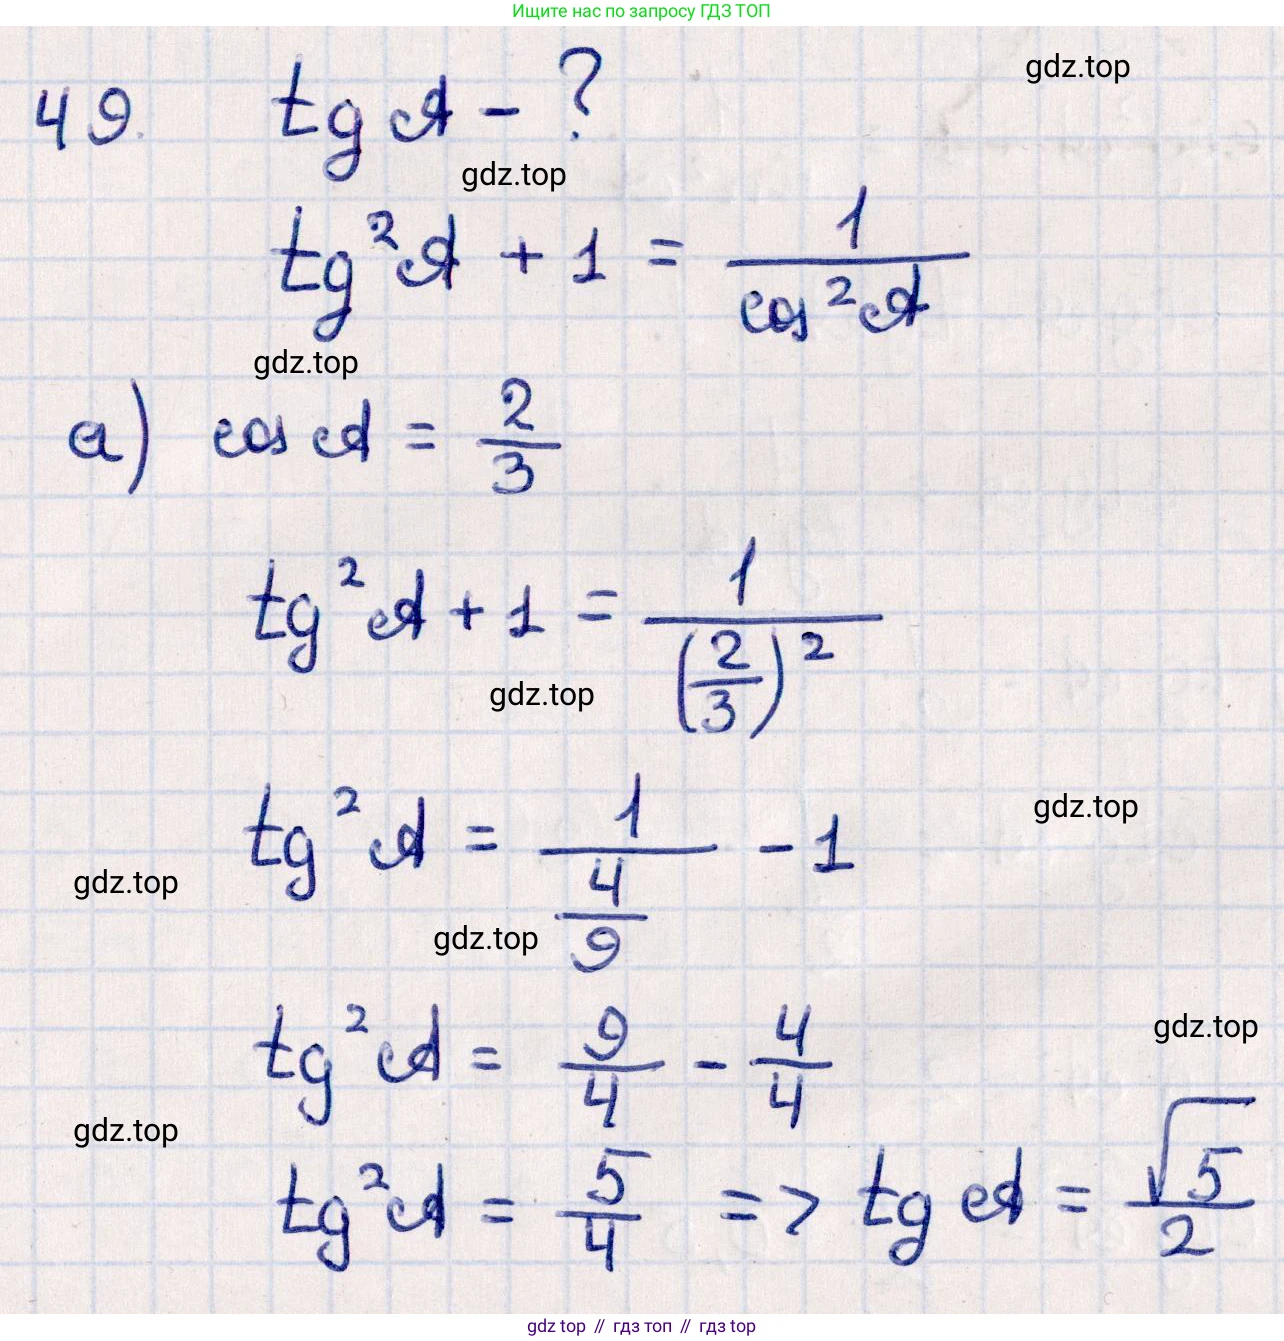 Ищите нас по запросу ГДЗ ТОП
gdz.top
49. tg A - ?
gdz.top
tg²A + 1 = 1/cos²A
gdz.top
а) cos A = 2/3
tg²A + 1 = 1/(2/3)²
gdz.top
gdz.top
tg²A = 1/(4/9) - 1
gdz.top
gdz.top
gdz.top
tg²A = 9/4 - 4/4
gdz.top
tg²A = 5/4 => tg A = √5/2
gdz top // гдз топ // гдз top